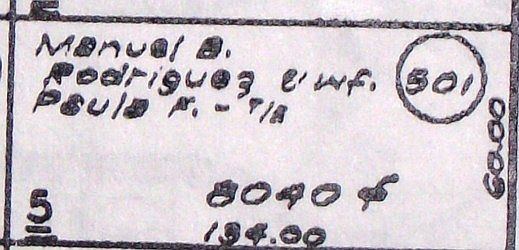 Manuel B.
Rodriguez & wf.
Paula A. - T/A
801
60.00
5
8040 ⌀
134.00